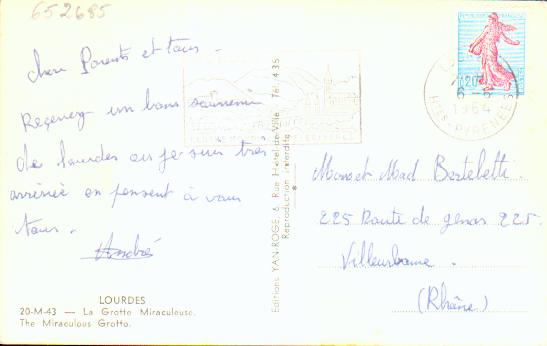 652685
Chers Parents et tous.
Recevez un bons souvenir
de lourdes ou je suis très
arrivée en pensent à vous
tous.
André
LOURDES
20-M-43 — La Grotte Miraculeuse.
The Miraculous Grotto.
Editions YAN-ROGE, 6, Rue Hôtel-de-Ville Tél. 4 35
Reproduction interdite
1964
HTES-PYRÉNÉES
Mons et Mad Berteletti.
225 Route de genas 225.
Villeurbanne.
(Rhône)